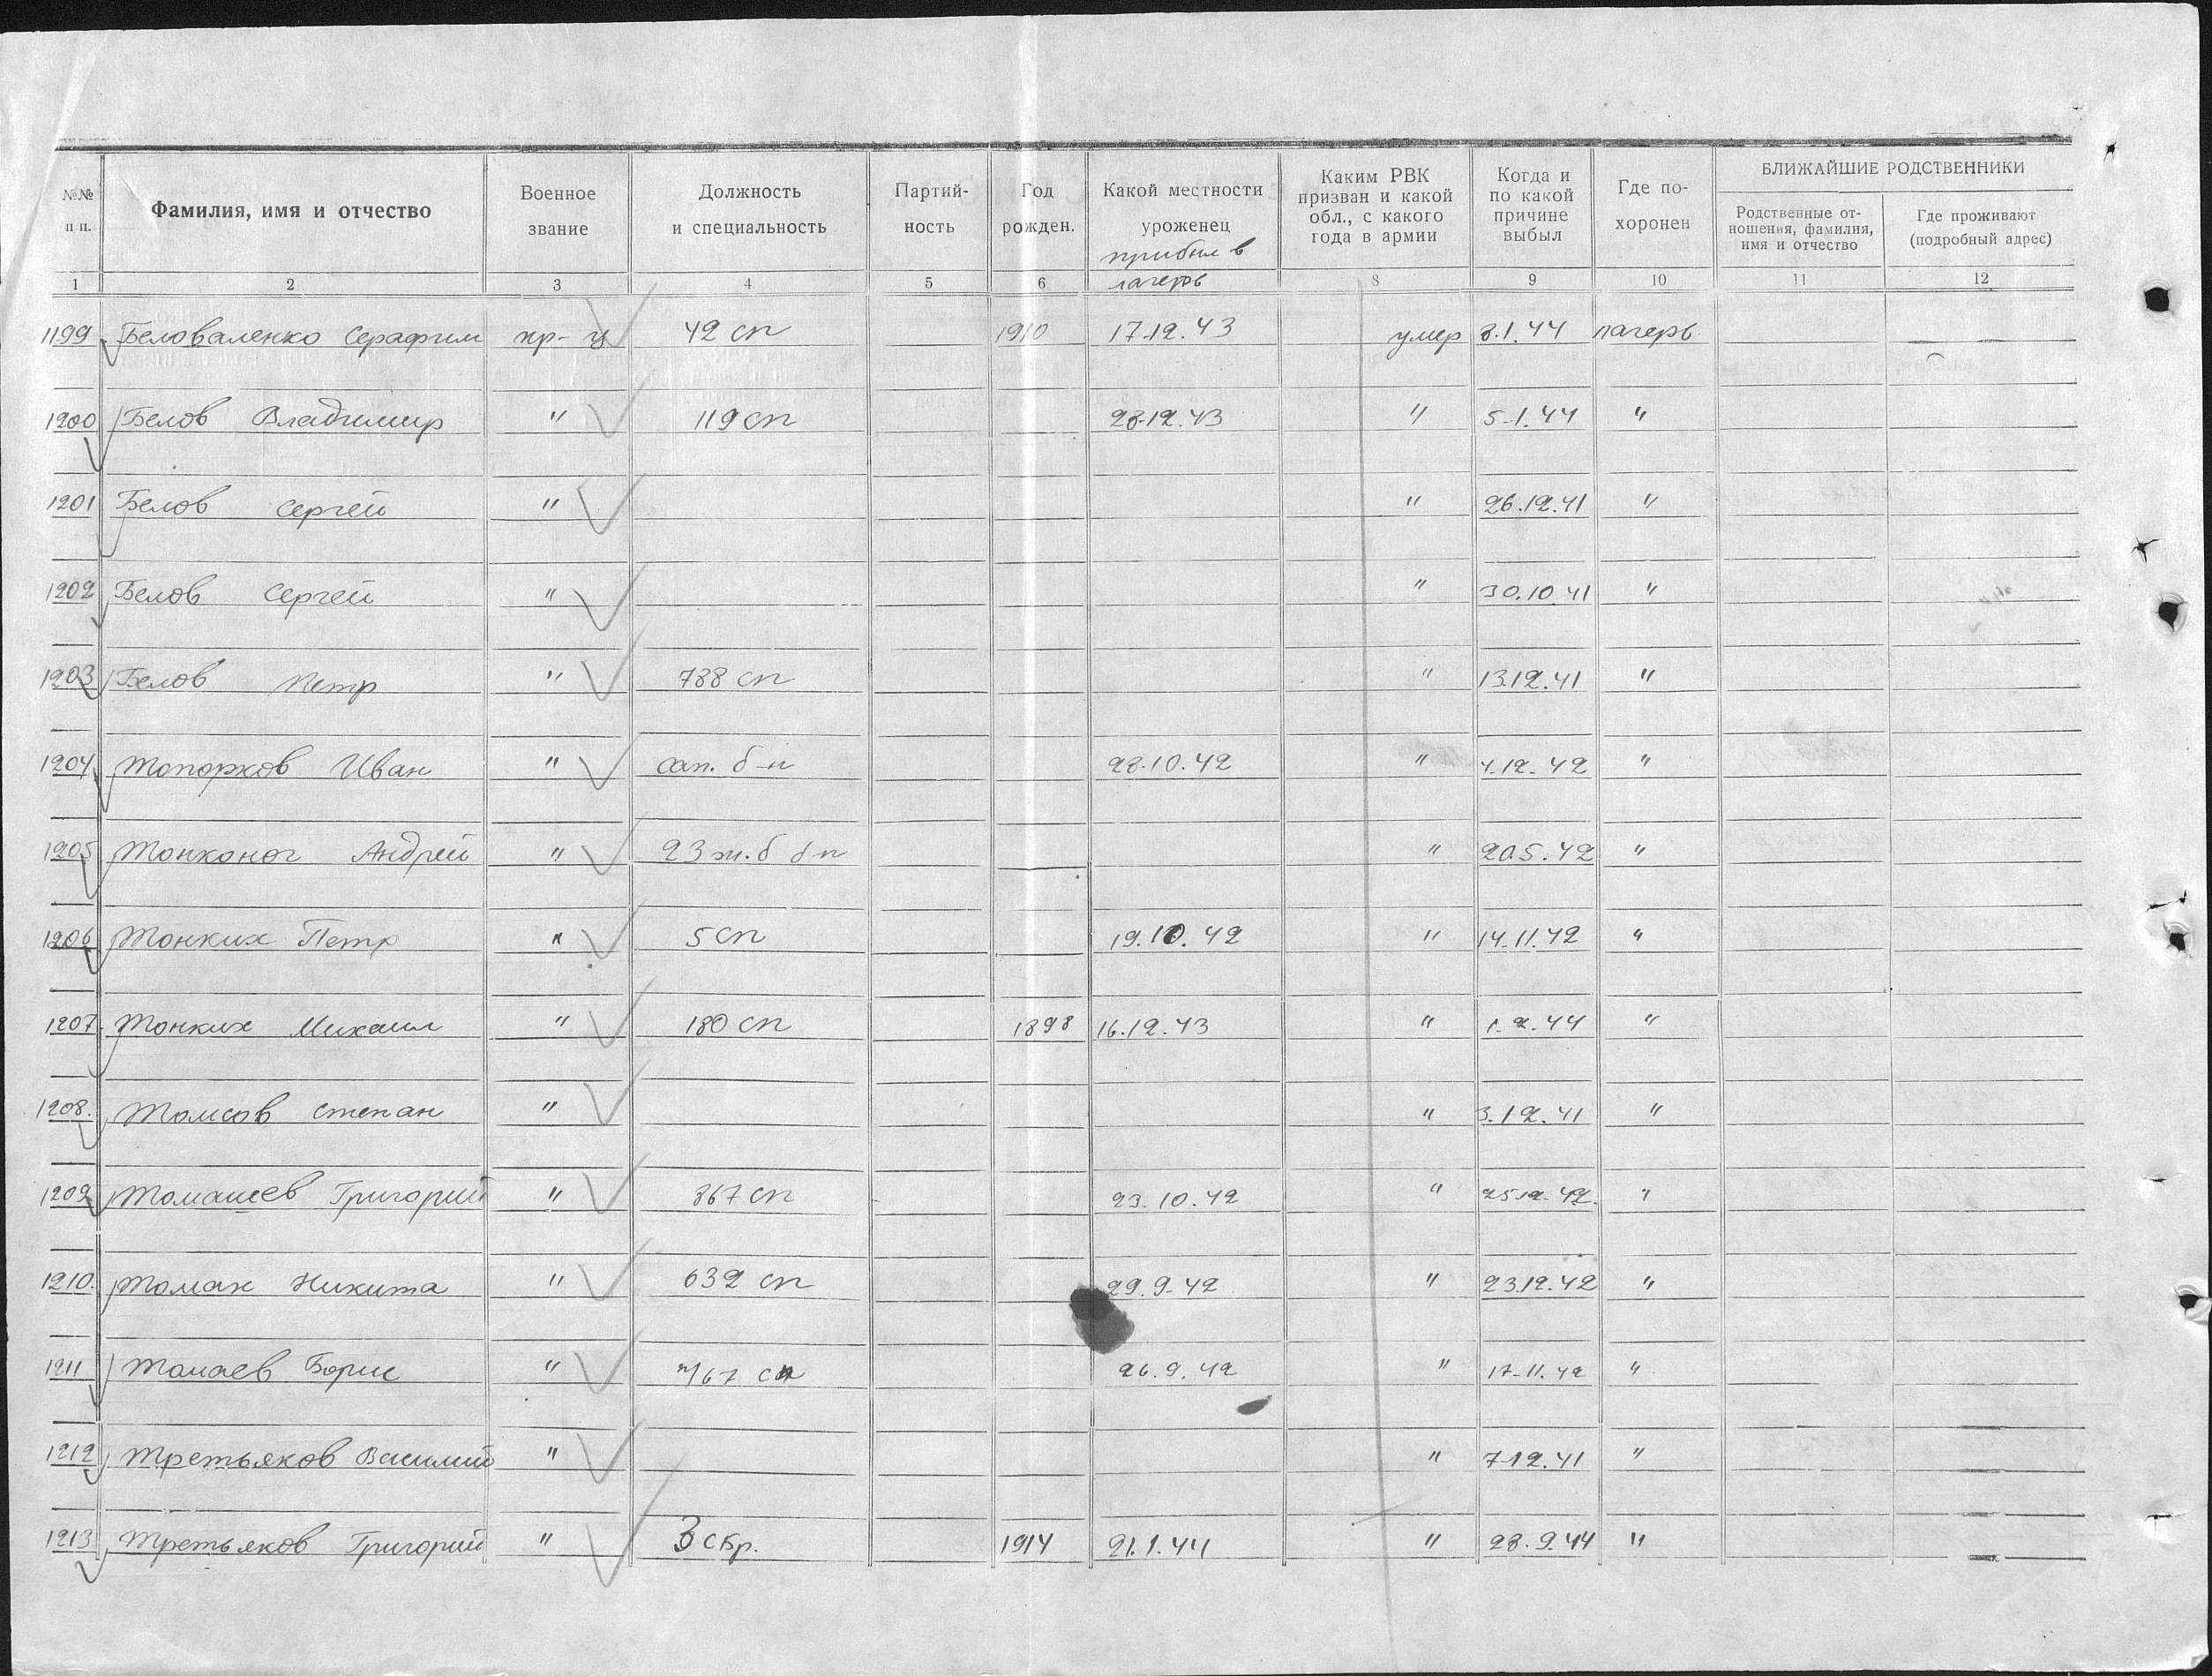 №№ п п. Фамилия, имя и отчество Военное звание Должность и специальность Партий-ность Год рожден. Какой местности уроженец прибыл в лагерь Каким РВК призван и какой обл., с какого года в армии Когда и по какой причине выбыл Где по-хоронен БЛИЖАЙШИЕ РОДСТВЕННИКИ Родственные от-ношения, фамилия, имя и отчество Где проживают (подробный адрес)
1 2 3 4 5 6 8 9 10 11 12
1199 Беловаленко Серафим кр-ц 42 сп 1910 17.12.43 умер 8.1.44 лагерь
1200 Белов Владимир " 119 сп 28.12.43 " 5.1.44 "
1201 Белов Сергей " " 26.12.41 "
1202 Белов Сергей " " 30.10.41 "
1203 Белов Петр " 788 сп " 13.12.41 "
1204 Топорков Иван " сап. б-н 28.10.42 " 4.12.42 "
1205 Тонконог Андрей " 23 " 20.5.42 "
1206 Тонких Петр " 5 сп 19.10.42 " 14.11.42 "
1207 Тонких Михаил " 180 сп 1898 16.12.43 " 1.2.44 "
1208. Томсов Степан " " 3.12.41 "
1209 Томашев Григорий " 367 сп 23.10.42 " 25.12.42. "
1210. Томах Никита " 632 сп 29.9.42 " 23.12.42 "
1211 Томаев Борис " 67 сп 26.9.42 " 17.11.42 "
1212 Третьяков Василий " " 7.12.41 "
1213 Третьяков Григорий " 3 сбр. 1914 21.1.44 " 28.9.44 "